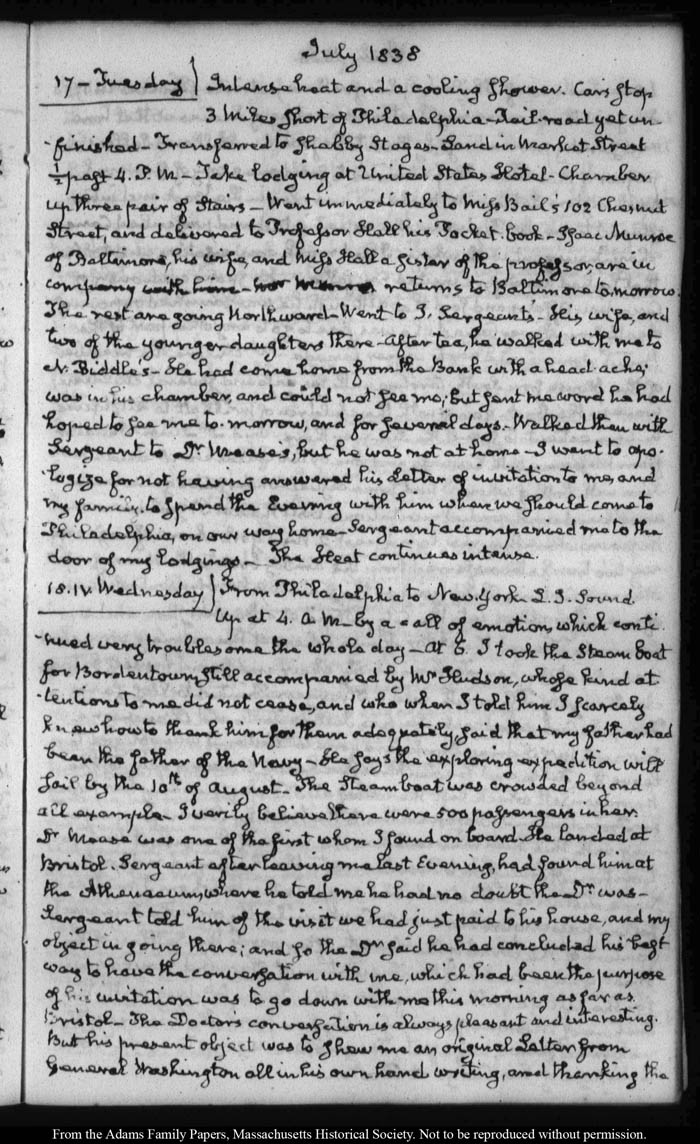 July 1838
17 - Tuesday) Intense heat and a cooling shower. Cars stop
3 Miles short of Philadelphia - Rail-road yet un-
-finished - Transferred to shabby Stages - Land in Market Street
½ past 4. P.M - Take lodging at United States Hotel - Chamber
up three pair of Stairs - Went immediately to Miss Bail's 102 Chesnut
Street, and delivered to Professor Hall his Pocket-book - Isaac Munroe
of Baltimore, his wife, and Miss Hall a Sister of the professor, are in
company with him - returns to Baltimore to.morrow.
The rest are going Northward - Went to J. Sergeant's - His wife, and
two of the younger daughters there - After tea, he walked with me to
N. Biddle's - He had come home from the Bank with a head-ache;
was in his chamber, and could not see me; but sent me word he had
hoped to see me to-morrow, and for several days. - Walked then with
Sergeant to Dr Mease's, but he was not at home - I went to apo-
-logize for not having answered his Letter of invitation to me, and
my family, to spend the Evening with him when we should come to
Philadelphia, on our way home - Sergeant accompanied me to the
door of my lodgings - The Heat continues intense.
18. IV. Wednesday) From Philadelphia to New-York L. I. Sound.
Up at 4. A.M - by a call of emotion, which conti-
-nued very troublesome the whole day - At 6. I took the Steam boat
for Bordentown, still accompanied by Mr Hudson, whose kind at-
-tentions to me did not cease, and who when I told him I scarcely
knew how to thank him for them adequately, said that my father had
been the father of the Navy - He says the exploring expedition will
sail by the 10th of August - The Steamboat was crowded beyond
all example - I verily believe there were 500 passengers in her.
Dr Mease was one of the first whom I found on board. He landed at
Bristol. Sergeant after leaving me last Evening, had found him at
the Athenaeum, where he told me he had no doubt the Dr was -
Sergeant told him of the visit we had just paid to his house, and my
object in going there; and so the Dr said he had concluded his best
way to have the conversation with me, which had been the purpose
of his invitation was to go down with me this morning as far as
Bristol - The Doctor's conversation is always pleasant and interesting.
But his present object was to shew me an original Letter from
General Washington all in his own hand writing, and thanking the
From the Adams Family Papers, Massachusetts Historical Society. Not to be reproduced without permission.